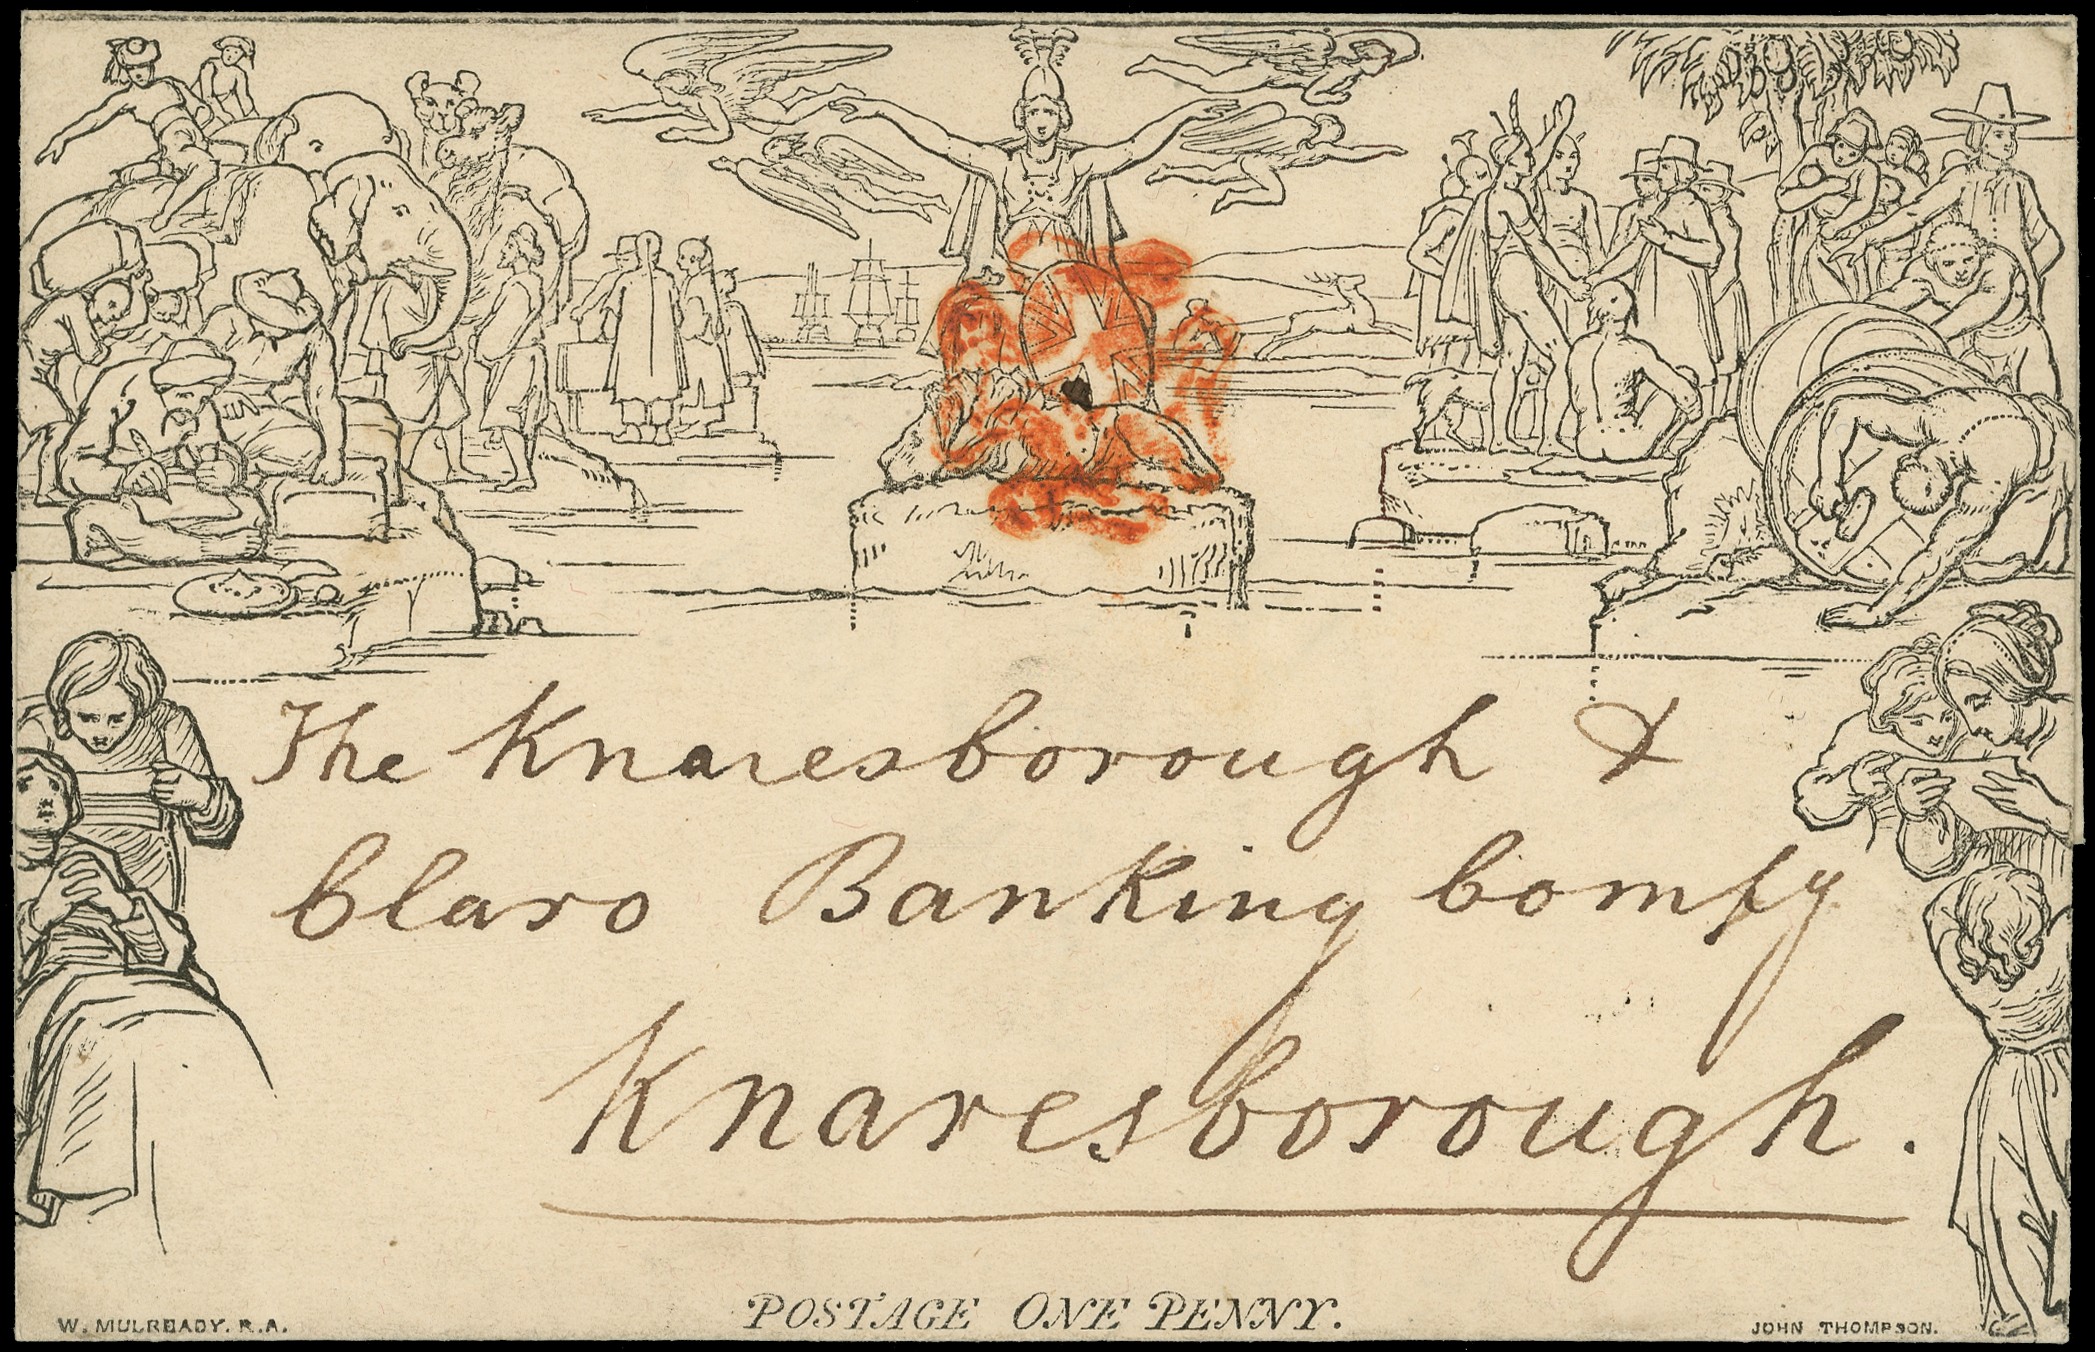 The Knaresborough &
Claro Banking Compy
Knaresborough.
POSTAGE ONE PENNY.
W. MULREADY. R.A.
JOHN THOMPSON.